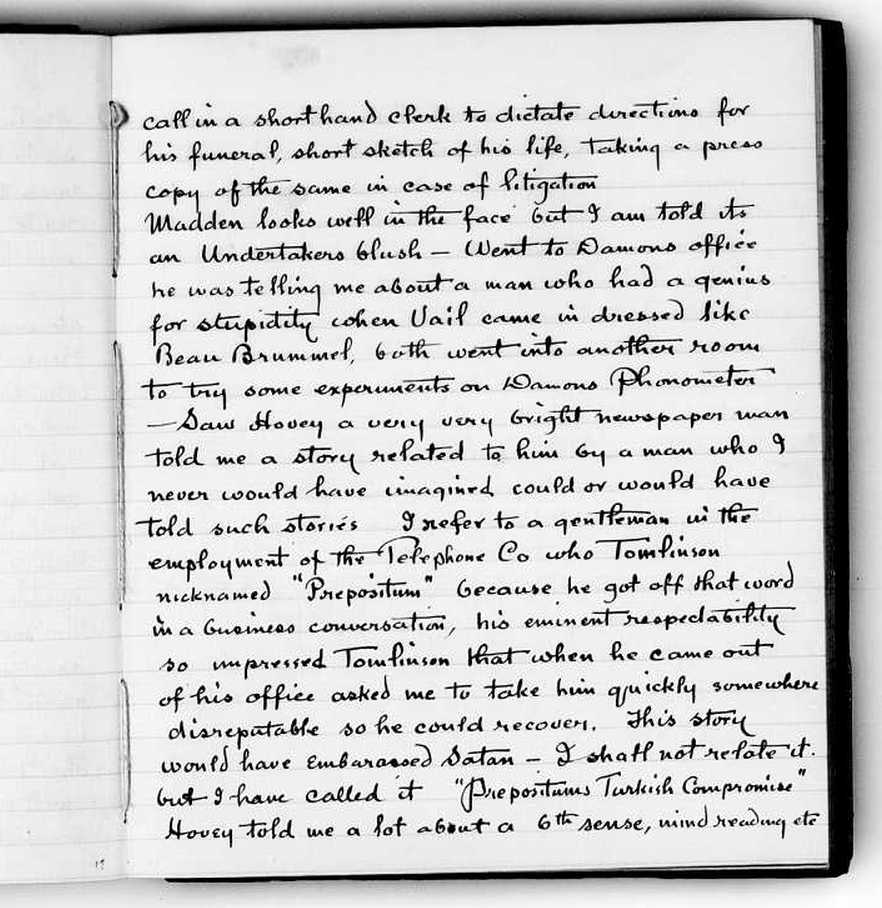 call in a shorthand clerk to dictate directions for
his funeral, short sketch of his life, taking a press
copy of the same in case of litigation
Madden looks well in the face but I am told its
an Undertakers blush — Went to Damons office
he was telling me about a man who had a genius
for stupidity when Vail came in dressed like
Beau Brummel, both went into another room
to try some experiments on Damons Phonometer
— Saw Hovey a very very bright newspaper man
told me a story related to him by a man who I
never would have imagined could or would have
told such stories I refer to a gentleman in the
employment of the Telephone Co who Tomlinson
nicknamed "Prepositum" because he got off that word
in a business conversation, his eminent respectability
so impressed Tomlinson that when he came out
of his office asked me to take him quickly somewhere
disreputable so he could recover. This story
would have embarassed Satan — I shall not relate it.
but I have called it "Prepositums Turkish Compromise"
Hovey told me a lot about a 6th sense, mind reading etc